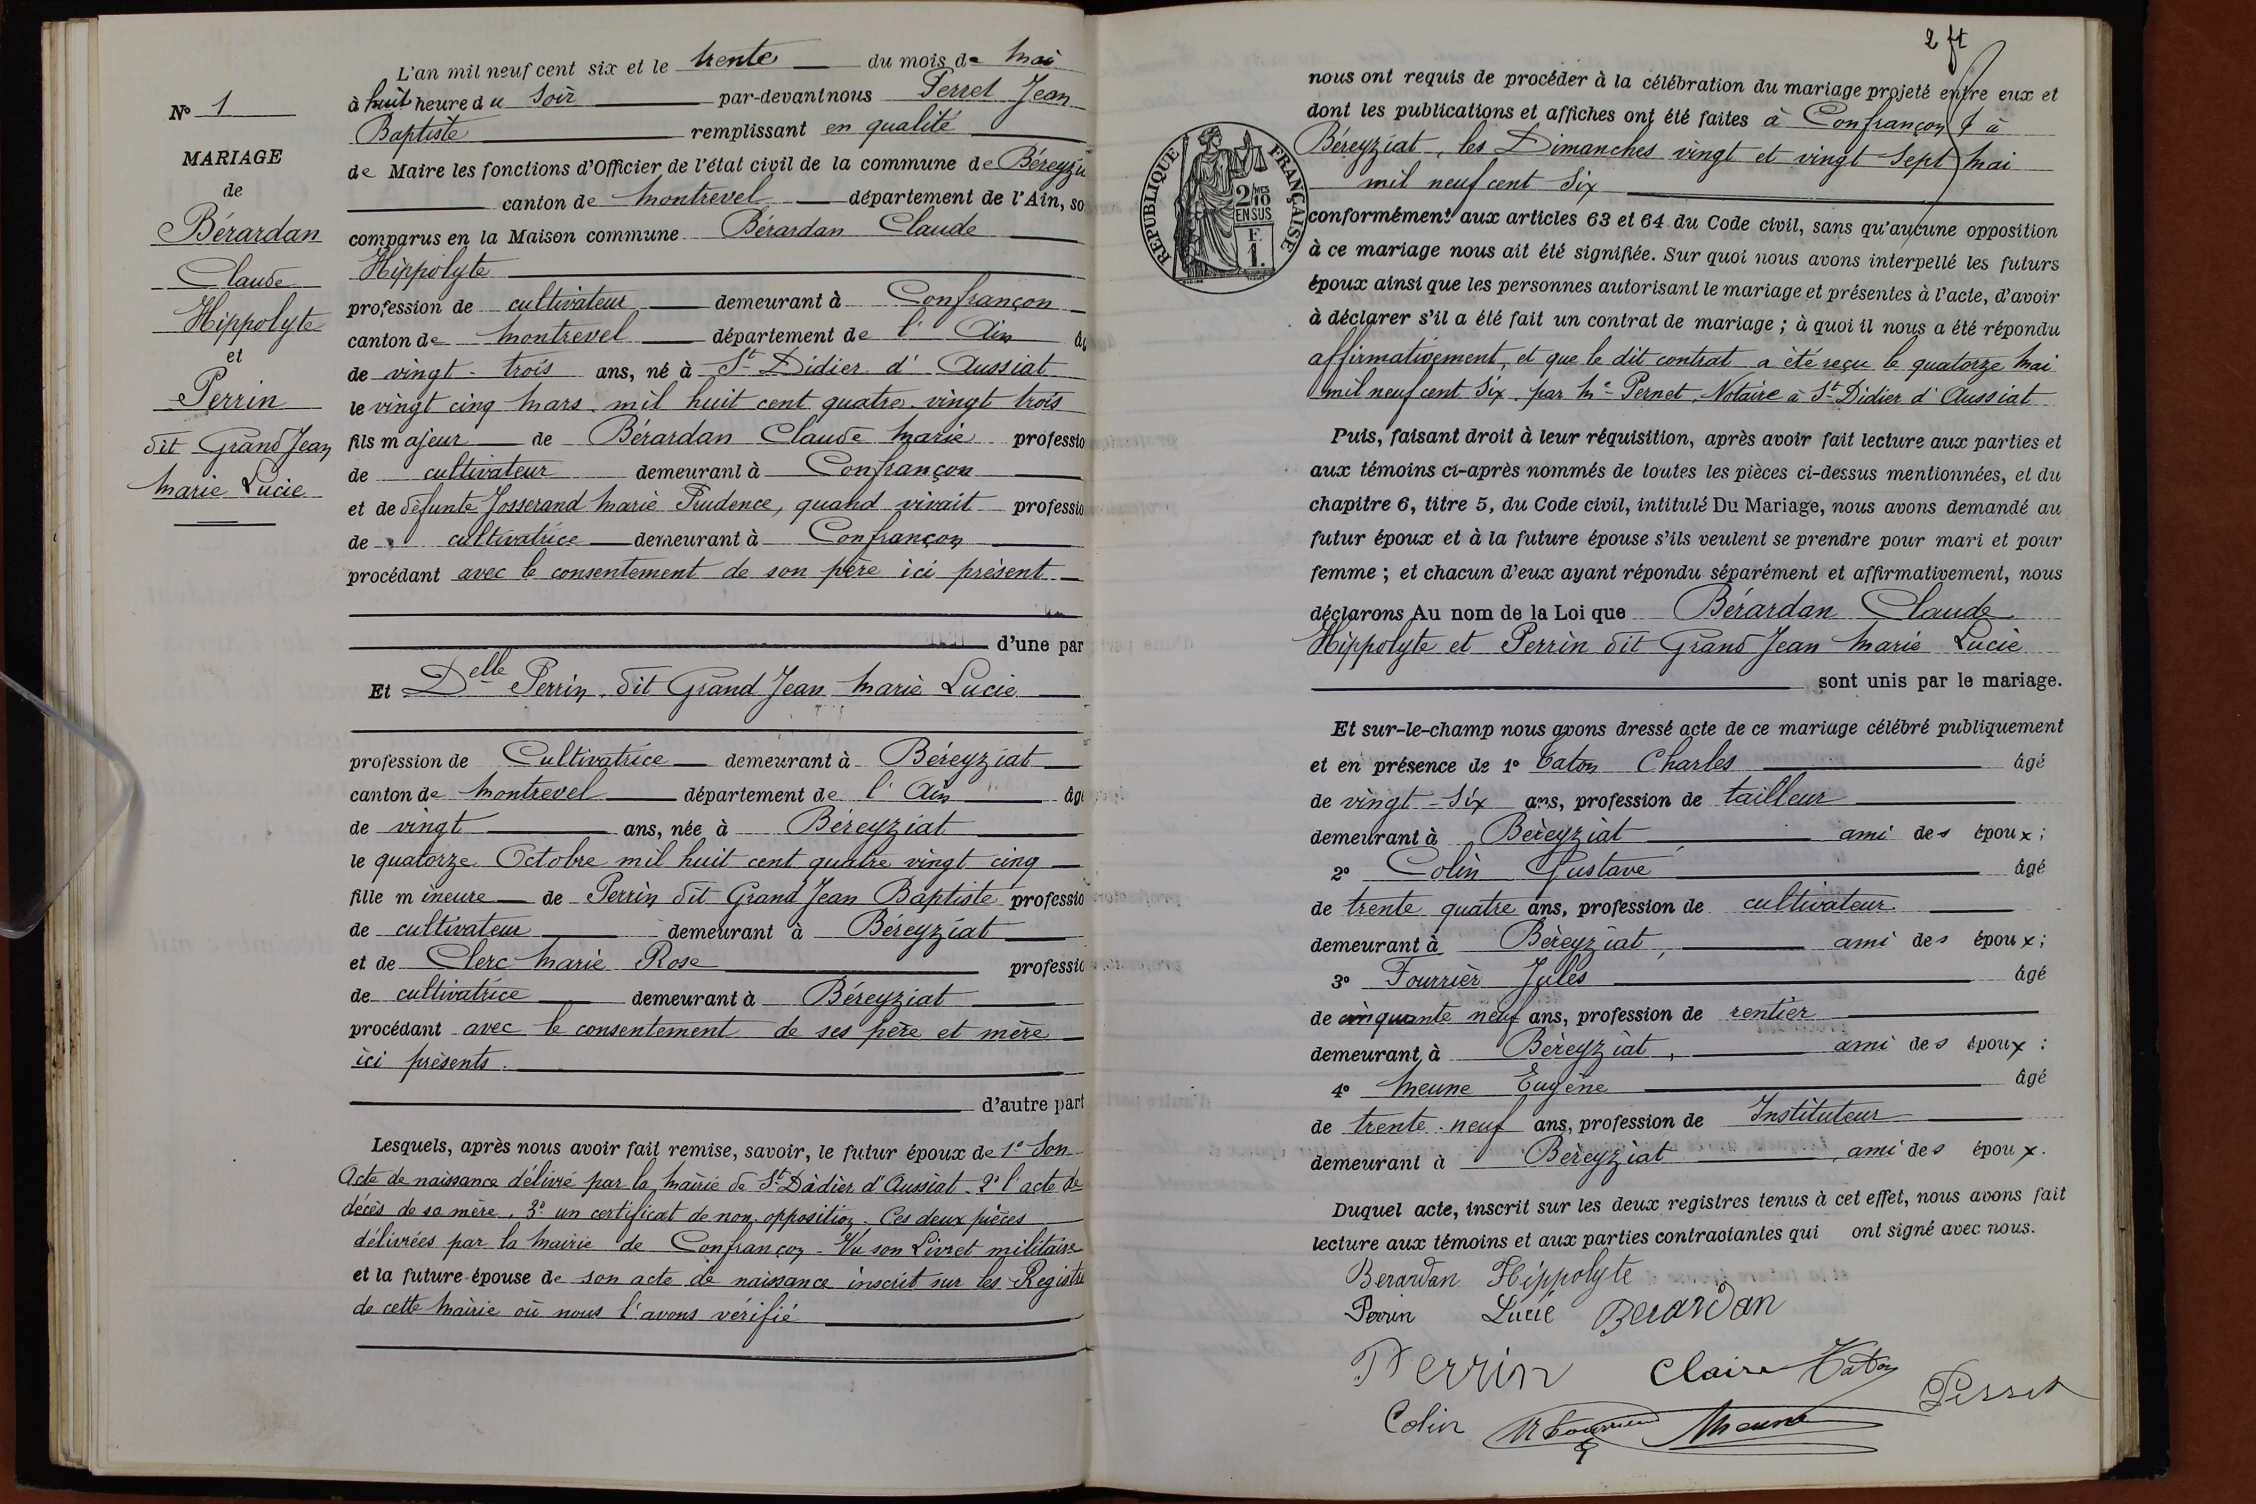 Nº 1
MARIAGE
de
Bérardan
Claude
Hippolyte
et
Perrin
dit Grand Jean
Marie Lucie
L'an mil neuf cent six et le trente du mois de Mai
à huit heure du Soir par-devant nous Perret Jean
Baptiste remplissant en qualité
de Maire les fonctions d'Officier de l'état civil de la commune de Béreyzi
canton de Montrevel département de l'Ain, so
comparus en la Maison commune Bérardan Claude
Hippolyte
profession de cultivateur demeurant à Confrançon
canton de Montrevel département de l'Ain âg
de vingt-trois ans, né à St Didier d'Aussiat
le vingt cinq Mars mil huit cent quatre vingt trois
fils majeur de Bérardan Claude Marie professio
de cultivateur demeurant à Confrançon
et de défunte Josserand Marie Prudence, quand vivait professio
de cultivatrice demeurant à Confrançon
procédant avec le consentement de son père ici présent
d'une par
Et Delle Perrin dit Grand Jean Marie Lucie
profession de Cultivatrice demeurant à Béreyziat
canton de Montrevel département de l'Ain âgé
de vingt ans, née à Béreyziat
le quatorze Octobre mil huit cent quatre vingt cinq
fille mineure de Perrin dit Grand Jean Baptiste professio
de cultivateur demeurant à Béreyziat
et de Clerc Marie Rose professio
de cultivatrice demeurant à Béreyziat
procédant avec le consentement de ses père et mère
ici présents.
d'autre part
Lesquels, après nous avoir fait remise, savoir, le futur époux de 1º Son
Acte de naissance délivré par la Mairie de St Didier d'Aussiat. 2º l'acte de
décès de sa mère. 3º un certificat de non opposition. Ces deux pièces
délivrées par la Mairie de Confrançon. Vu son Livret militaire
et la future épouse de son acte de naissance inscrit sur les Registre
de cette Mairie où nous l'avons vérifié
2 ft
nous ont requis de procéder à la célébration du mariage projeté entre eux et
dont les publications et affiches ont été faites à Confrançon & à
Béreyziat, les Dimanches vingt et vingt Sept Mai
mil neuf cent Six
REPUBLIQUE FRANÇAISE
2/10 MES
EN SUS
F.
1.
conformément aux articles 63 et 64 du Code civil, sans qu'aucune opposition
à ce mariage nous ait été signifiée. Sur quoi nous avons interpellé les futurs
époux ainsi que les personnes autorisant le mariage et présentes à l'acte, d'avoir
à déclarer s'il a été fait un contrat de mariage ; à quoi il nous a été répondu
affirmativement, et que le dit contrat a été reçu le quatorze Mai
mil neuf cent Six par Me Pernet, Notaire à St Didier d'Aussiat
Puis, faisant droit à leur réquisition, après avoir fait lecture aux parties et
aux témoins ci-après nommés de toutes les pièces ci-dessus mentionnées, et du
chapitre 6, titre 5, du Code civil, intitulé Du Mariage, nous avons demandé au
futur époux et à la future épouse s'ils veulent se prendre pour mari et pour
femme ; et chacun d'eux ayant répondu séparément et affirmativement, nous
déclarons Au nom de la Loi que Bérardan Claude
Hippolyte et Perrin dit Grand Jean Marie Lucie
sont unis par le mariage.
Et sur-le-champ nous avons dressé acte de ce mariage célébré publiquement
et en présence de 1º Taton Charles âgé
de vingt-six ans, profession de tailleur
demeurant à Béreyziat ami des époux ;
2º Colin Gustave âgé
de trente quatre ans, profession de cultivateur
demeurant à Béreyziat, ami des époux ;
3º Fourrier Jules âgé
de cinquante neuf ans, profession de rentier
demeurant à Béreyziat, ami des époux :
4º Meune Eugène âgé
de trente-neuf ans, profession de Instituteur
demeurant à Béreyziat, ami des époux.
Duquel acte, inscrit sur les deux registres tenus à cet effet, nous avons fait
lecture aux témoins et aux parties contractantes qui ont signé avec nous.
Berardan Hippolyte
Perrin Lucie Berardan
Perrin Claire Taton
Perret
Colin Meune